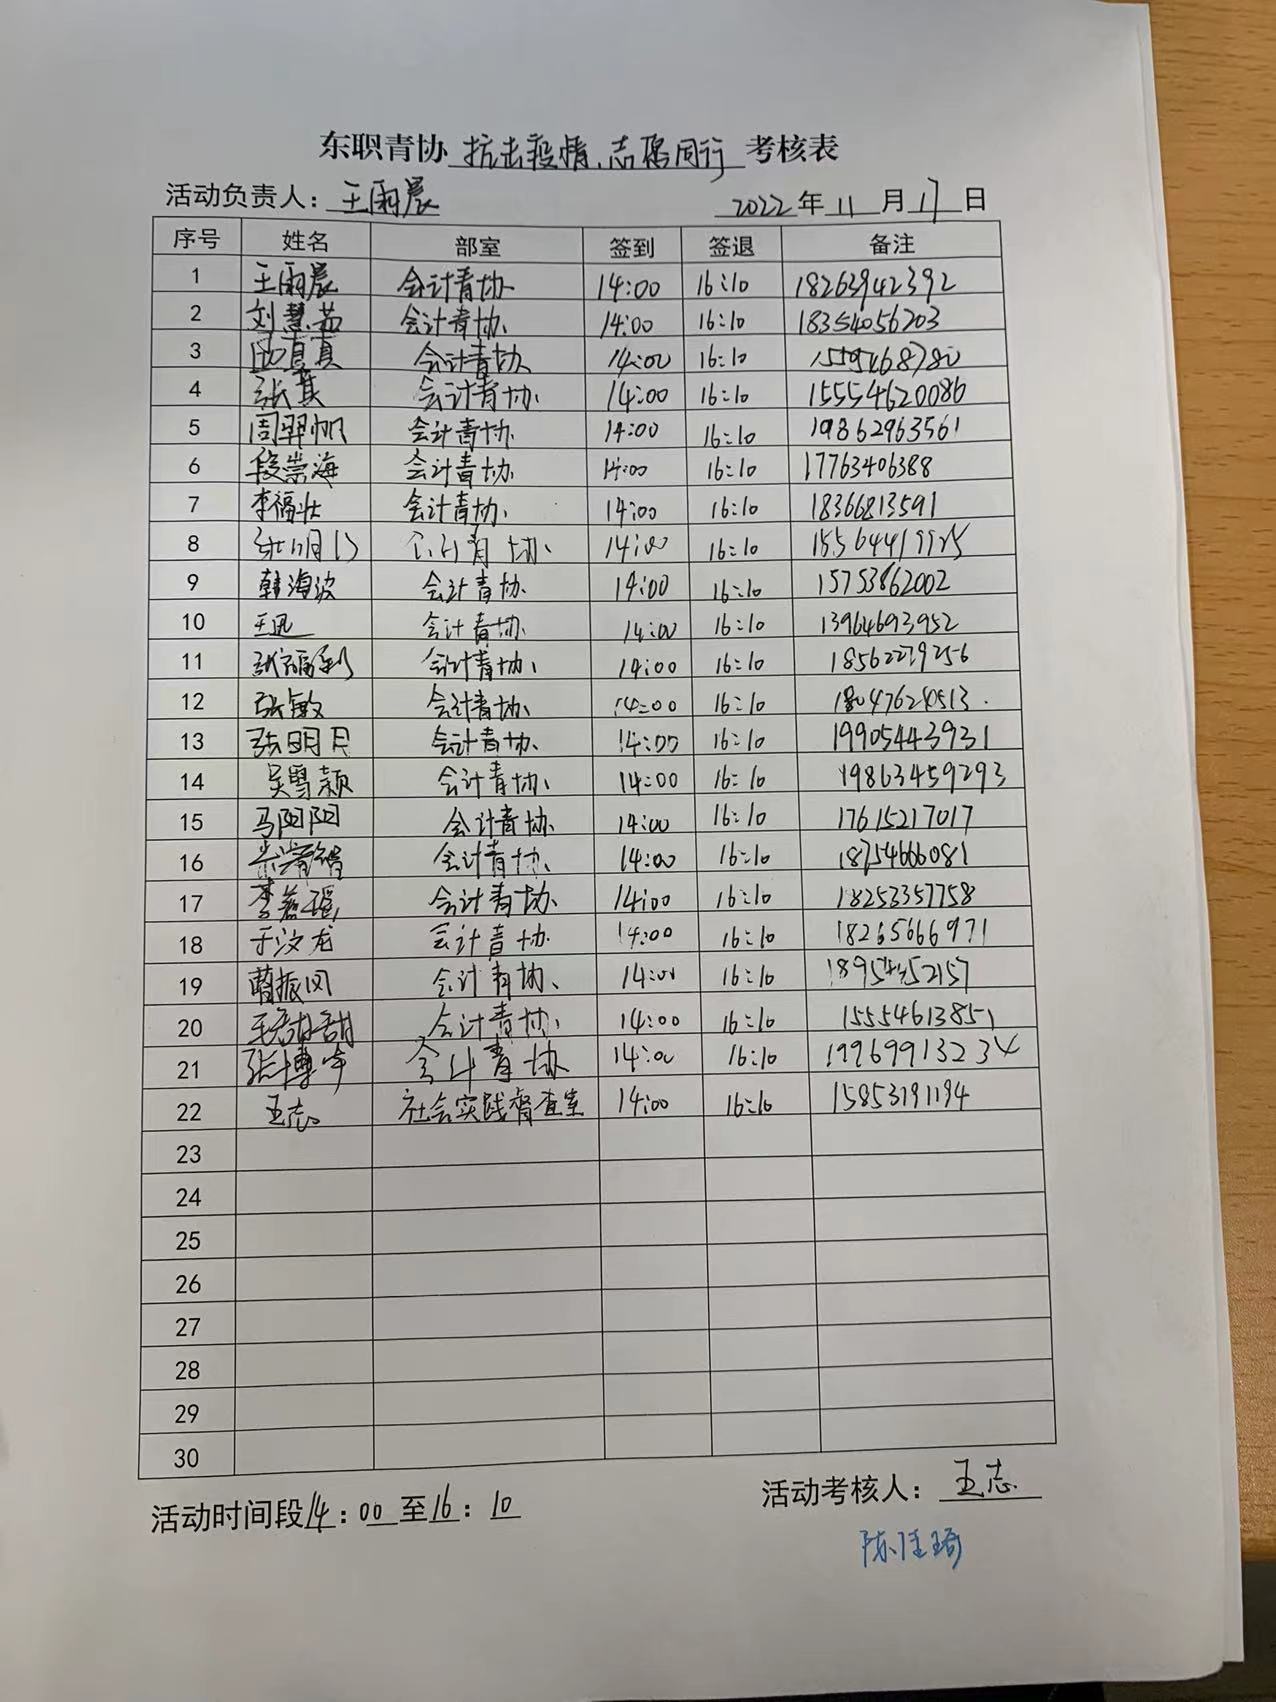 东职青协 抗击疫情、志愿同行 考核表
活动负责人：王雨晨 2022年11月17日
序号 姓名 部室 签到 签退 备注
1 王雨晨 会计青协 14:00 16:10 18263942392
2 刘慧茹 会计青协 14:00 16:10 18354056203
3 真真 会计青协 14:00 16:10
4 张真 会计青协 14:00 16:10 15554620086
5 周羿帆 会计青协 14:00 16:10 19862963561
6 段崇海 会计青协 14:00 16:10 17763406388
7 李福壮 会计青协 14:00 16:10 18366813591
8 会计青协 14:00 16:10
9 韩海波 会计青协 14:00 16:10 15753862002
10 王迅 会计青协 14:00 16:10 13964693952
11 张福利 会计青协 14:00 16:10
12 张敏 会计青协 14:00 16:10
13 张明月 会计青协 14:00 16:10 19905443931
14 吴雪颖 会计青协 14:00 16:10 19863459293
15 马阳阳 会计青协 14:00 16:10 17615217017
16 会计青协 14:00 16:10 18754666081
17 李蕊瑶 会计青协 14:00 16:10 18253357758
18 于汶龙 会计青协 14:00 16:10 18265666971
19 曹振风 会计青协 14:00 16:10
20 王甜甜 会计青协 14:00 16:10 15554613851
21 张博宇 会计青协 14:00 16:10 19969913234
22 王志 社会实践督查室 14:00 16:10 15853191194
23
24
25
26
27
28
29
30
活动时间段14：00至16：10 活动考核人：王志
陈佳琦